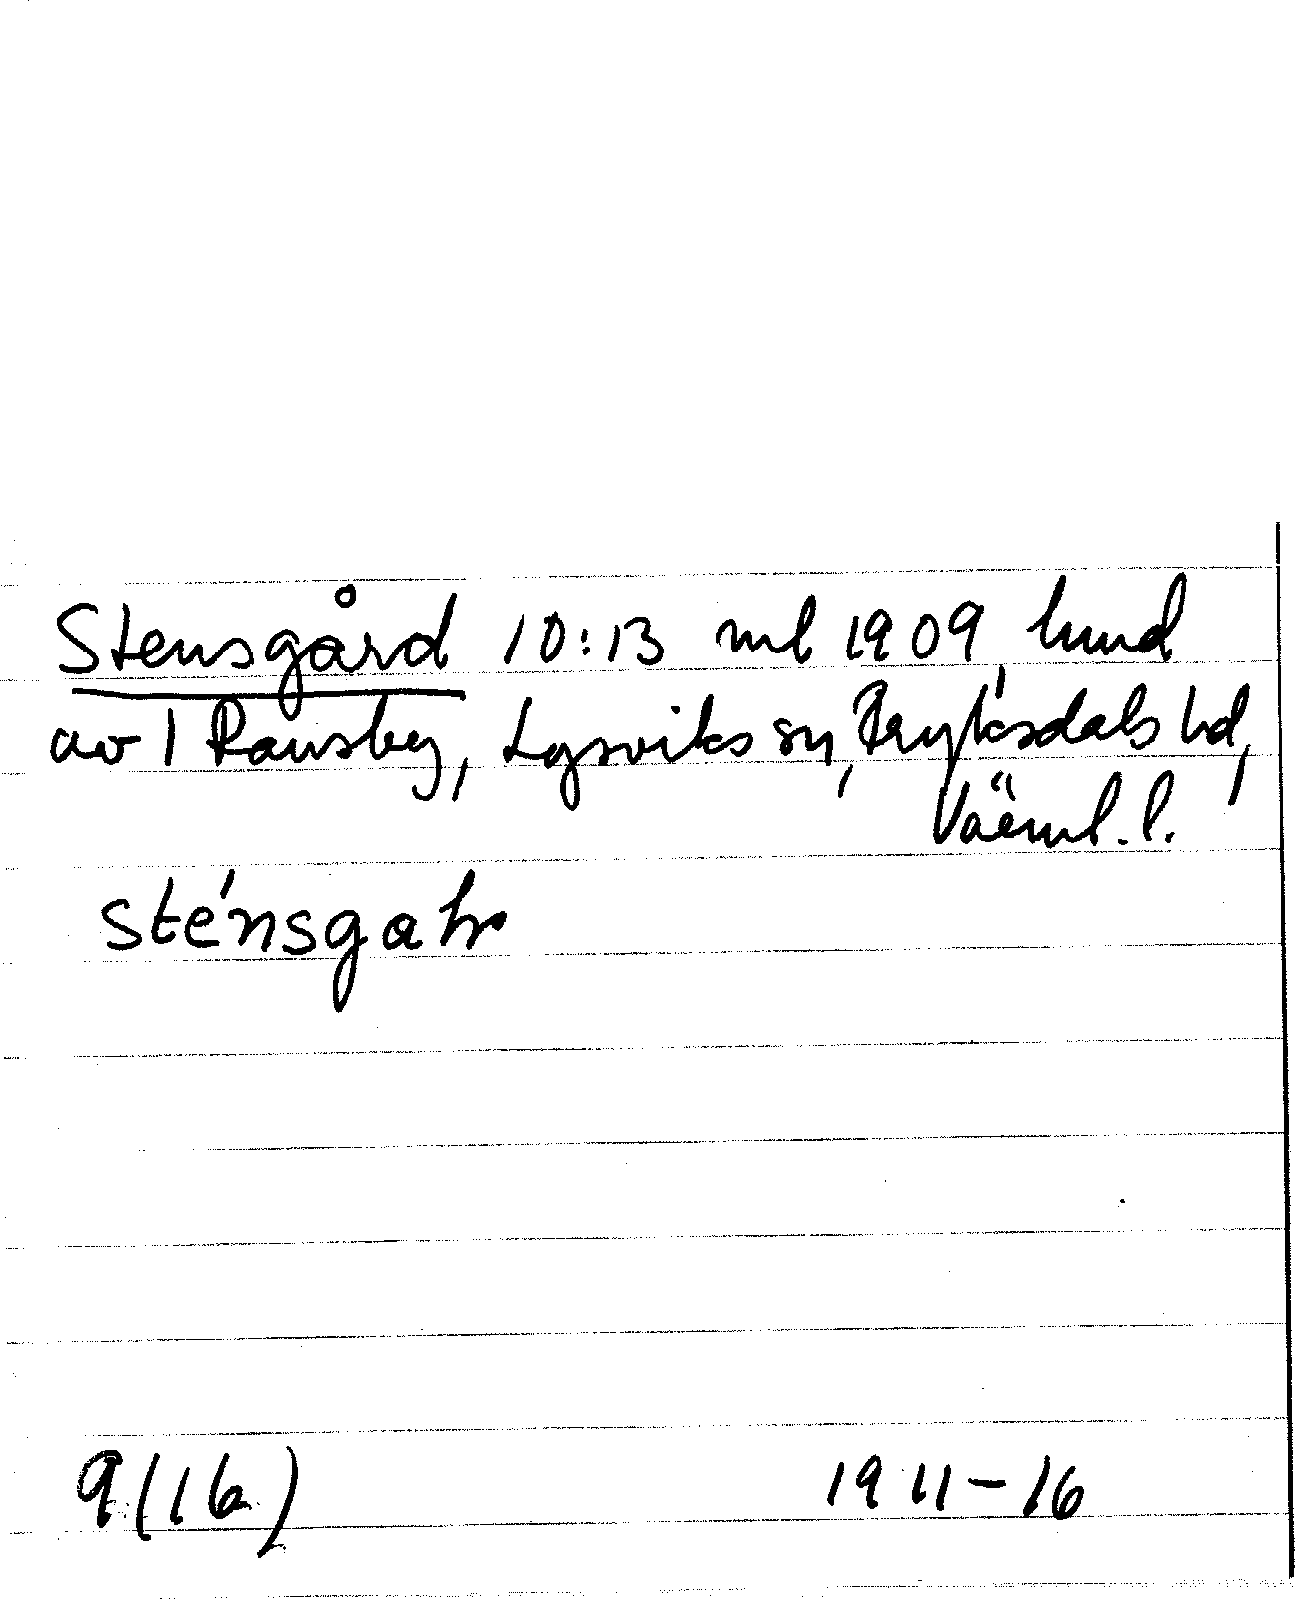 Stensgård 10:13 ml 1909, hmd
av 1 Ransby, Lysviks sn, Fryksdals hd,
Värml. l.
sténsgaḥ
9(16) 1911-16